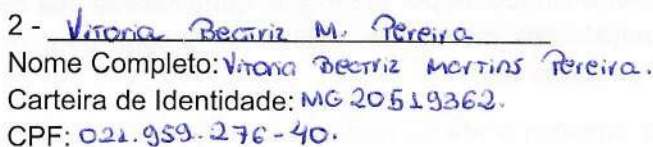 2 - Vitoria Beatriz M. Pereira
Nome Completo: Vitoria Beatriz Martins Pereira.
Carteira de Identidade: MG 20519362.
CPF: 021.959.276-40.